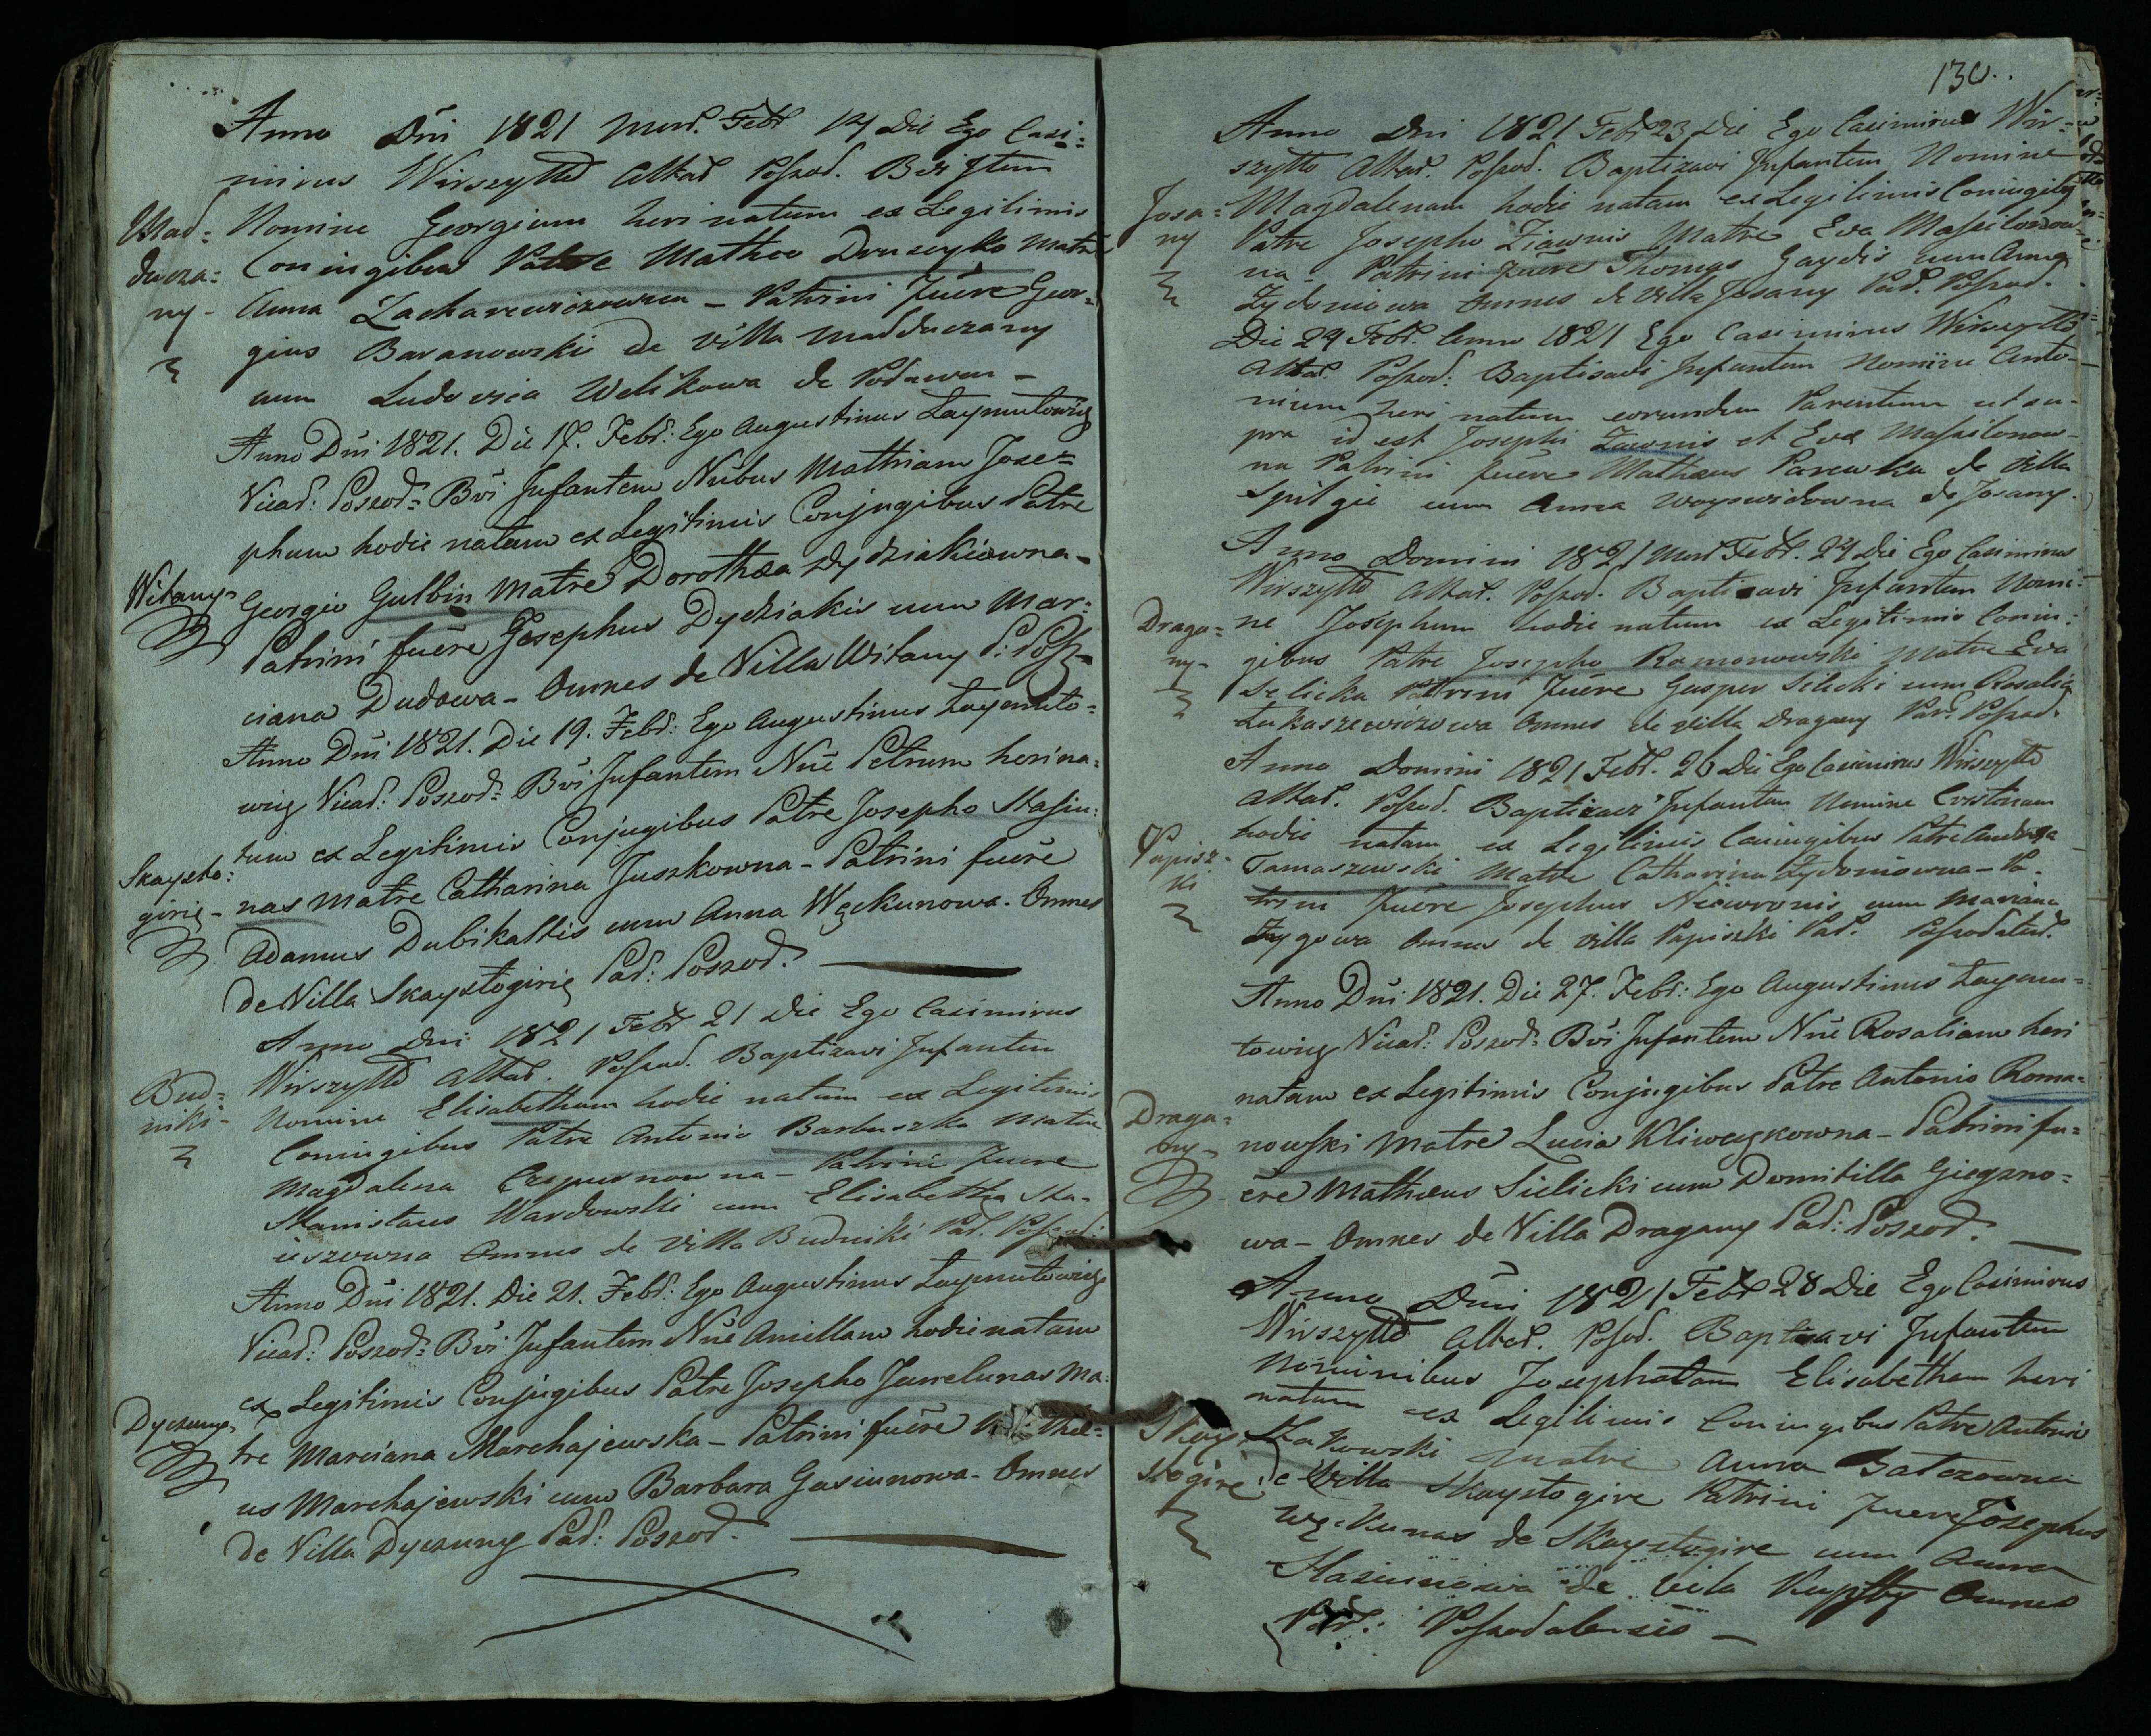 Anno Dñi 1821 Mens. Febr 14 Die Ego Casi=
mirus Wirszyłło Altar. Poszod. Bvi Jtem
Mad= Nomine Georgium heri natum ex Legitimis
ducza= Coniugibus Patre Matheo Druszyło Matre
ny- Anna Zacharewiczowna – Patrini fuere Geor=
gius Baranowski de Villa Madduczany
cum Ludovica Welikowa de
Anno Dñi 1821. Die 17. Febr: Ego Augustinus Taymutowicz
Vicar: Poszod= Bvi Infantem Nñibus Mathiam Jose=
phum hodie natum ex Legitimis Conjugibus Patre
Witany- Georgio Gulbin Matre Dorothæa Dydziakiowna-
Patrini fuêre Josephus Dydziakis cum Mar=
ciana Dudowa – Omnes de Villa Witany P: Posz-
Anno Dñi 1821. Die 19. Febr: Ego Augustinus Taymuto=
wicz Vicar: Poszod= Bvi Infantem Nñe Petrum heri na=
tum ex Legitimis Conjugibus Patre Josepho Stasiu=
Skaysto:
girie- nas Matre Catharina Juszkowna – Patrini fuêre
Adamus Dubikaltis cum Anna Węckunowa. Omnes
de Villa Skaystogirie Par: Poszod.
Anno Dni 1821 Febr 21 Die Ego Casimirus
Wirszyłło Altar. Poszod. Baptizavi Infantem
Bud=
niki- Nomine Elisabetham hodie natam ex Legitimis
Coniugibus Patre Antonio Barbuszka Matre
Magdalena – Patrini fuere
Stanislaus Wardowski cum Elisabetha Sta-
iszowna Omnes de Villa Budniki Par. Poszod:
Anno Dñi 1821. Die 21. Febr: Ego Augustinus Taymutowicz
Vicar: Poszod= Bvi Infantem Nñe Aniellam hodie natam
ex Legitimis Conjugibus Patre Josepho Jawelunas Ma=
Dyczuny- tre Marciana Marchajewska – Patrini fuêre
us Marchajewski cum Barbara Gasiunowa – Omnes
de Villa Dyczuny Par: Poszod.
130.
Anno Dni 1821 Febr 23 Die Ego Casimirus Wir=
szyłło Altar. Poszod. Baptizavi Infantem Nomine
Josa= Magdalenam hodie natam ex Legitimis Coniugibg
ny Patre Josepho Ziawnis Matre Eva
na Patrini fuere Thomas Gaydis cum Anna
Zydoniowa Omnes de Villa Josany Par. Poszod.
Die 24 Febr. Anno 1821 Ego Casimirus Wirszyłło
Altar. Poszod: Baptisavi Infantem Nomine Anto-
nium heri natum eorundem Parentum ut su-
pra id est Josephi Zawnis et Eva
na Patrini fuere Mathæus Parewka de Villa
Spilgie cum Anna de Josany.
Anno Domini 1821 Mens Febr. 24 Die Ego Casimirus
Wirszyłło Altar. Poszod. Baptisavi Infantem Nomi=
Draga= ne Josephum hodie natum ex Legitimis Coniu=
ny- gibus Patre Josepho Romanowski Matre Eva
Selicka Patrini fuere Gasper Silicki cum Rosalia
Lukaszewiczowa Omnes de Villa Dragany Par. Poszod.
Anno Domini 1821 Febr. 26 Die Ego Casimirus Wirszyłło
Altar. Poszod. Baptizavi Infantem Nomine Cristinam
hodie natam ex Legitimis Coniugibus Patre Andrea
Papisz=
ki Tamaszewski Matre Catharina Zydoniowna – Pa-
trini fuere Josephus Niewronis cum Mariana
Zygowa Omnes de Villa Papiszki Par. Poszodalad.
Anno Dñi 1821. Die 27. Febr: Ego Augustinus Taymu=
towicz Vicar: Poszod= Bvi Infantem Nñe Rosaliam heri
natam ex Legitimis Conjugibus Patre Antonio Roma=
Draga=
ny- nowski Matre Lucia – Patrini fu=
ere Mathæus Sielicki cum Domitilla Giegzno=
wa – Omnes de Villa Dragany Par: Poszod.
Anno Dñi 1821 Febr 28 Die Ego Casimirus
Wirszyłło Altar. Poszod. Baptisavi Infantem
Nominibus Josephatam Elisabetham heri
natam ex Legitimis Coniugibus Patre Antonio
Skay Stakowski Matre Anna Batezowna
stogire de Villa Skaystogire Patrini fuere Josephus
Węckunas de Skaystogire cum Anna
Stasiunowa de Villa Omnes
Par: Poszodalensis –